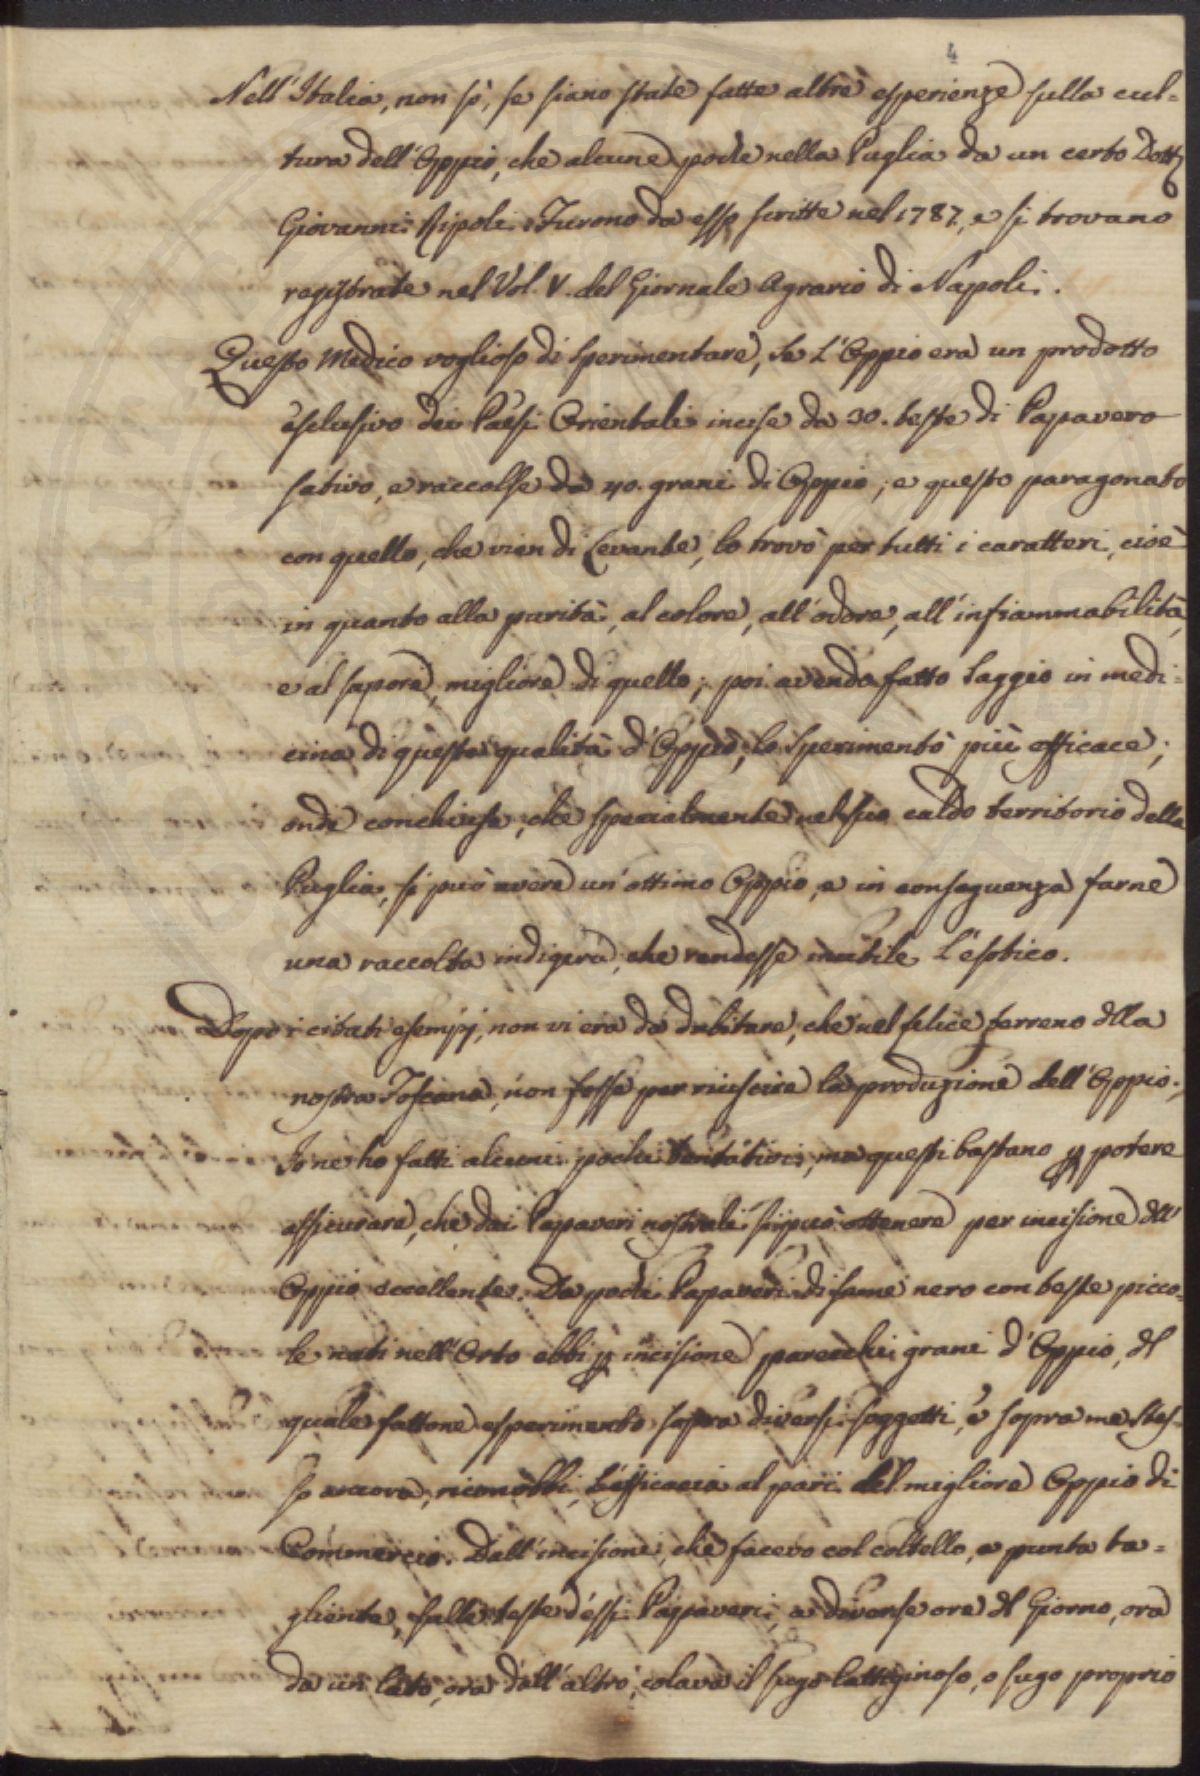 4
Nell'Italia, non sò, se siano state fatte altre esperienze sulla cul-
tura dell'Oppio, che alcune poche nella Puglia da un certo Dott.
Giovanni Ripoli. Furono da esso scritte nel 1787., e si trovano
registrate nel Vol. V. del Giornale Agrario di Napoli.
Questo Medico voglioso di sperimentare, se l'Oppio era un prodotto
esclusivo dei Paesi Orientali incise da 30. teste di Papavero
sativo, e raccolse da 40. grani di Oppio; e questo paragonato
con quello, che vien di Levante, lo trovò per tutti i caratteri, cioè
in quanto alla purità, al colore, all'odore, all'infiammabilità,
e al sapore, migliore di quello; poi avendo fatto saggio in medi-
cina di questa qualità d'Oppio, lo sperimentò più efficace;
onde conchiuse, che specialmente nel suo caldo territorio della
Puglia, si può avere un'ottimo Oppio, e in conseguenza farne
una raccolta indigena, che rendesse inutile l'esotico.
Dopo i citati esempj, non vi era da dubitare, che nel felice terreno dlla
nostra Toscana, non fosse per riuscire la produzione dell'Oppio.
Io ne ho fatti alcuni pochi tentativi, ma questi bastano p potere
assicurare, che dai Papaveri nostrali si può ottenere per incisione dll'
Oppio eccellente. Da pochi Papaveri di seme nero con teste picco-
le nati nell'Orto ebbi p incisione parecchi grani d'Oppio, dl
quale fattone esperimento sopra diversi soggetti, e sopra me stes-
so ancora, riconobbi l'efficacia al pari del migliore Oppio di
Commercio. Dall'incisioni, che facevo col coltello, a punta ta-
gliente, sulle teste d'essi Papaveri, a diverse ore dl Giorno, ora
da un lato, ora dall'altro, colava il sugo lattiginoso, o sugo proprio